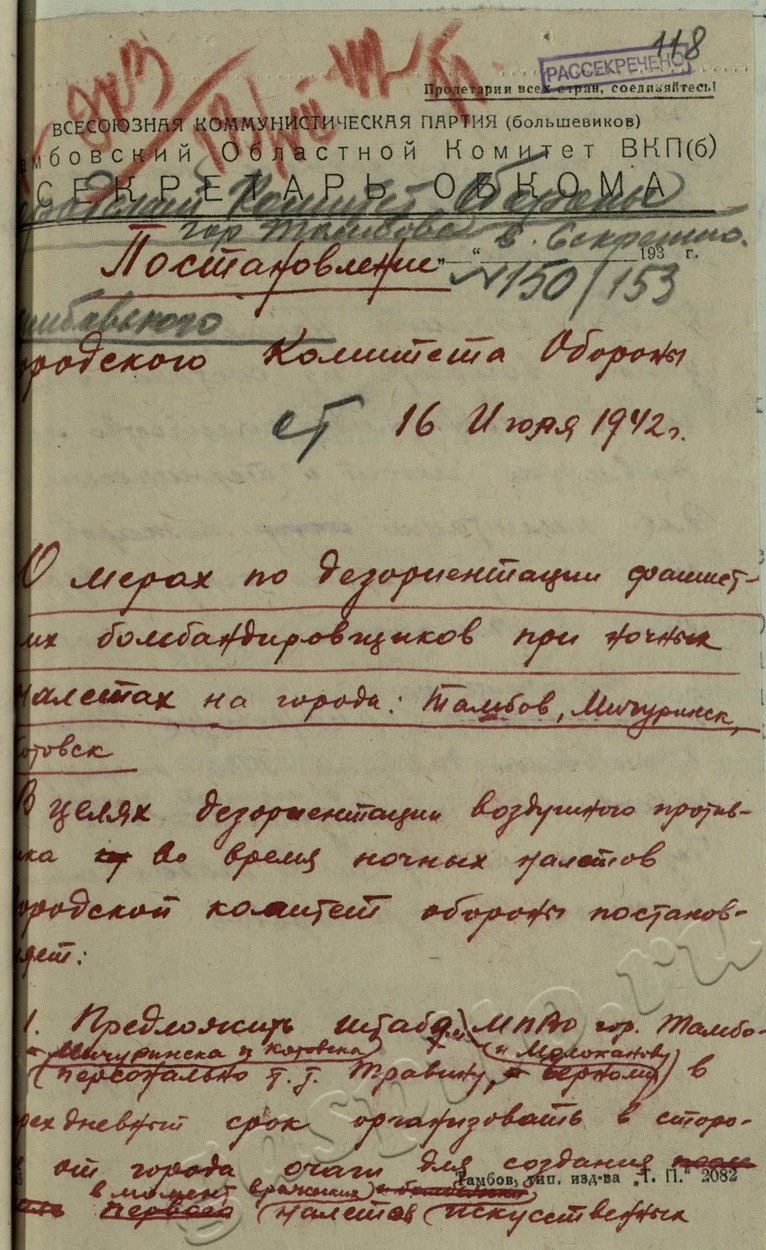 118
РАССЕКРЕЧЕНО
Пролетарии всех стран, соединяйтесь!
ВСЕСОЮЗНАЯ КОММУНИСТИЧЕСКАЯ ПАРТИЯ (большевиков)
амбовский Областной Комитет ВКП(б)
СЕКРЕТАРЬ ОБКОМА
Комитет Обороны
гор Тамбова С. Секретно.
„ — “ 193 г.
Постановление № 150/153
амбовского
ородского Комитета Обороны
от 16 Июля 1942 г.
О мерах по дезориентации фашист-
их бомбандировщиков при ночных
налетах на города: Тамбов, Мичуринск,
отовск
В целях дезориентации воздушного против-
ика во время ночных налетов
ородской комитет обороны постанов-
яет:
1. Предложить штабам МПВО гор. Тамбо-
Мичуринска и Котовска и Молоканову
(персонально т.т. Травину, Верному) в
рех дневный срок организовать в сторо-
е от города очаги для создания
Тамбов, тип. изд-ва „Т. П.“ 2082
в момент вражеских
налетов искусственных
gaspito.ru